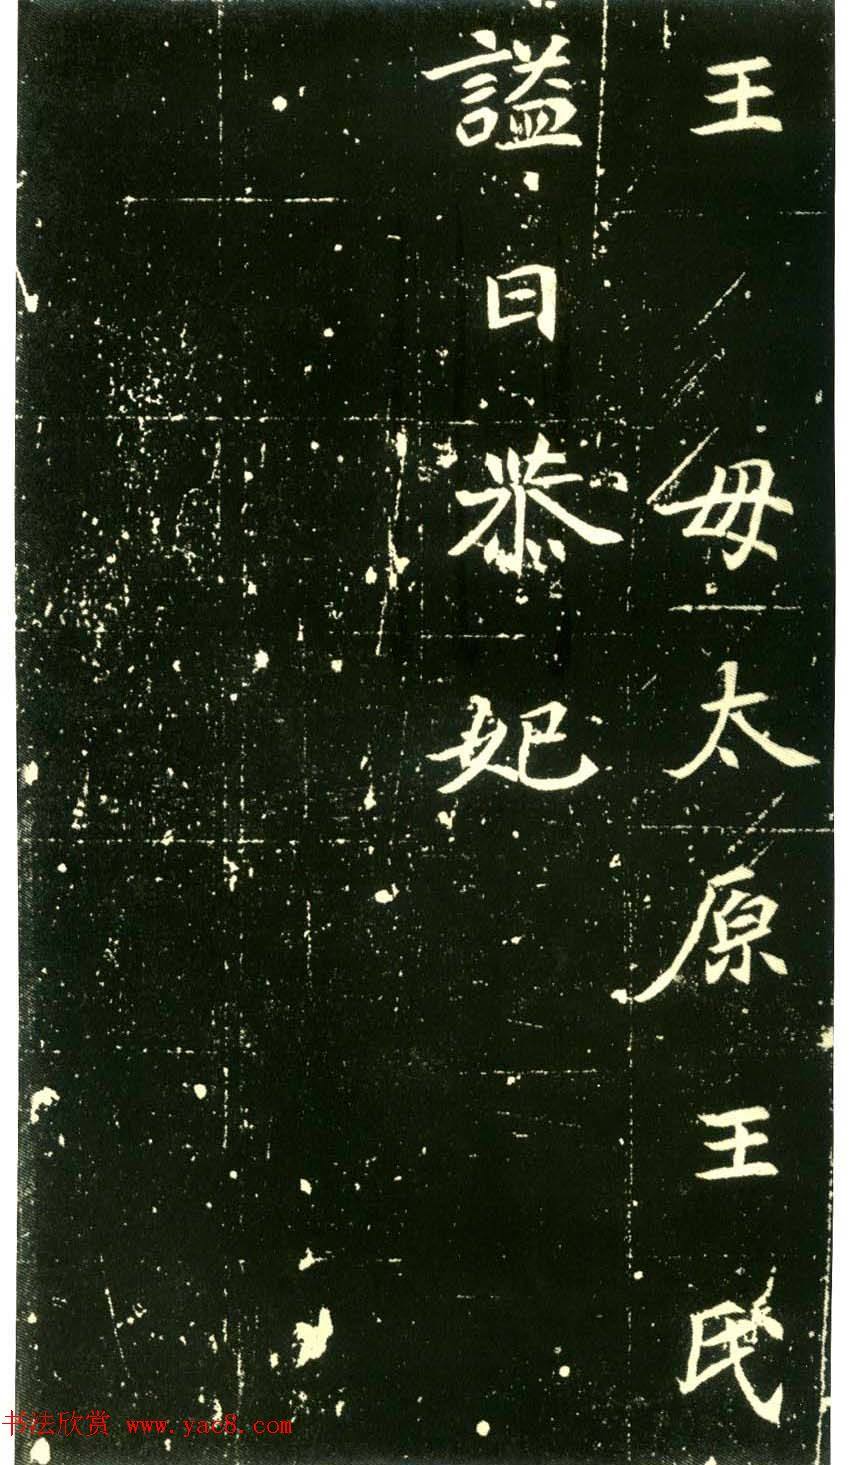 王母太原王氏
謚曰恭妃
书法欣赏 www.yac8.com